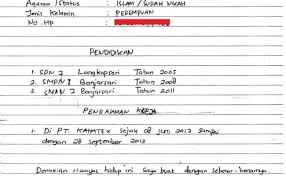 Agama / Status : ISLAM / SUDAH NIKAH
Jenis Kelamin : PEREMPUAN
No . Hp :
PENDIDIKAN
1. SDN 2 Langkapsari Tahun 2005
2. SMPN 1 Banjarsari Tahun 2008
3. SMAN 2 Banjarsari Tahun 2011
PENGALAMAN KERJA
1. Di PT. KAHATEX Sejak 08 juni 2012 Sampai
dengan 28 September 2013
Demikian riwayat hidup ini saya buat dengan sebenar-benarnya.